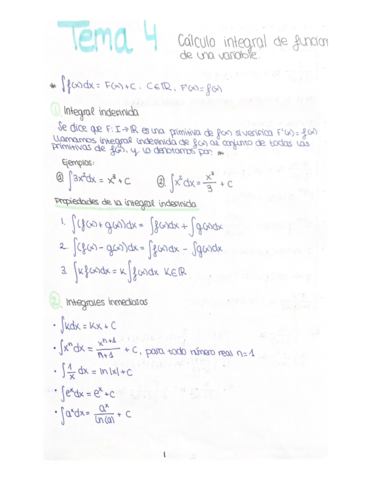 Tema 4 Cálculo integral de funcion
de una variable.
* ∫f(x)dx = F(x)+C, C∈ℝ, F'(x)=f(x)
① Integral indefinida
Se dice que F: I→ℝ es una primitiva de f(x) si verifica F'(x)=f(x)
Llamamos integral indefinida de f(x) al conjunto de todas las
primitivas de f(x), y lo denotamos por *
Ejemplos:
① ∫3x²dx = x³ + C ② ∫x²dx = x³/3 + C
Propiedades de la integral indefinida
1. ∫(f(x)+g(x))dx = ∫f(x)dx + ∫g(x)dx
2. ∫(f(x)-g(x))dx = ∫f(x)dx - ∫g(x)dx
3. ∫kf(x)dx = k∫f(x)dx K∈ℝ
② Integrales inmediatas
• ∫kdx = Kx + C
• ∫xⁿdx = xⁿ⁺¹/n+1 + C, para todo número real n=1
• ∫1/x dx = ln|x| + C
• ∫eˣdx = eˣ + C
• ∫aˣdx = aˣ/ln(a) + C
1